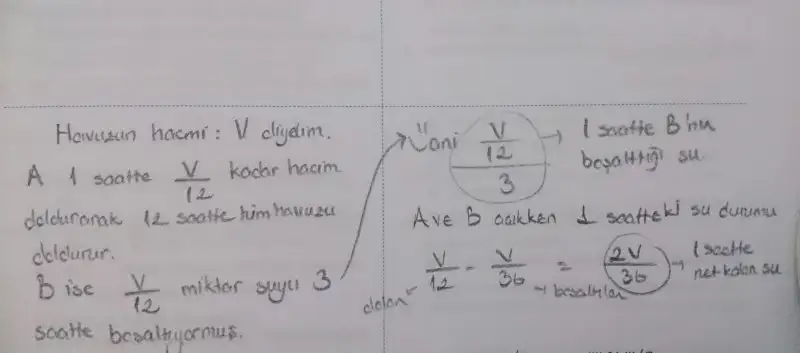 Havuzun hacmi : V diyelim.
A 1 saatte V/12 kadar hacim
doldurarak 12 saatte tüm havuzu
doldurur.
B ise V/12 miktar suyu 3
saatte boşaltıyormuş.
Yani (V/12)/3 → 1 saatte B'nin
boşalttığı su
A ve B açıkken 1 saatteki su durumu
V/12 - V/36 = 2V/36 → 1 saatte
net kalan su
dolan
boşaltılan